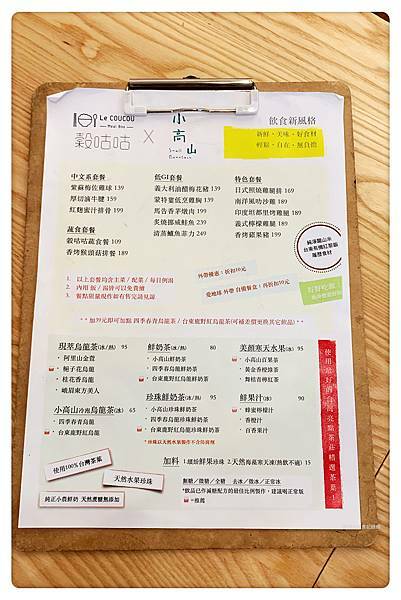 Le COUCOU
Meal Box
穀咕咕
×
小高山
Small Mountain
飲食新風格
新鮮、美味、好食材
輕鬆、自在、無負擔
中文系套餐
紫蘇梅佐雞球 139
厚切滷牛腱 159
紅麴蜜汁排骨 199
蔬食套餐
穀咕咕蔬食餐 109
香烤猴頭菇排餐 189
低GI套餐
義大利油醋梅花豬 139
蒙特婁低烹雞胸 139
馬告香茅燉肉 199
炙燒挪威鮭魚 239
清蒸鱸魚菲力 249
特色套餐
日式照燒雞腿排 169
南洋風叻沙雞 189
印度坦都里烤雞腿 189
義式檸檬雞腿 189
香烤霸果豬 199
1. 以上套餐均含主菜 / 配菜 / 每日例湯
2. 內用 飯 / 湯皆可以免費續
3. 餐點限量現作如有售完請見諒
外帶優惠：折扣10元
愛地球 外帶 自備餐盒：再折扣10元
**加39元即可加點 四季春青烏龍茶 / 台東鹿野紅烏龍茶(可補差價更換其它飲品)**
現萃烏龍茶(冰/熱) 95
・阿里山金萱
・梔子花烏龍
・桂花香烏龍
・峨眉東方美人
小高山冷泡烏龍茶(冰) 65
・四季春青烏龍
・台東鹿野紅烏龍
鮮奶茶(冰/熱) 80
・小高山鮮奶茶
・四季春烏龍鮮奶茶
・台東鹿野紅烏龍鮮奶茶
珍珠鮮奶茶(冰/熱) 95
・小高山珍珠鮮奶茶
・四季春烏龍珍珠鮮奶茶
・台東鹿野紅烏龍珍珠鮮奶茶
*珍珠以天然水果製作不含防腐劑
美顏寒天水果(冰) 95
・小高山百果茶
・黃金香橙綠茶
・舞桔青檸紅茶
鮮果汁(冰) 90
・蜂蜜檸檬汁
・香橙汁
・百香果汁
使用最好的台灣亮點茶莊精選茶葉！
加料 1.繽紛鮮果珍珠 2.天然海藻寒天凍(熱飲不適) 15
無糖 / 微糖 / 全糖 去冰 / 微冰 / 正常冰
*飲品已作減糖配方的最佳比例製作，建議喝正常版
=推薦
使用100%台灣茶葉
天然水果珍珠
純正小農鮮奶 天然蔗糖無添加